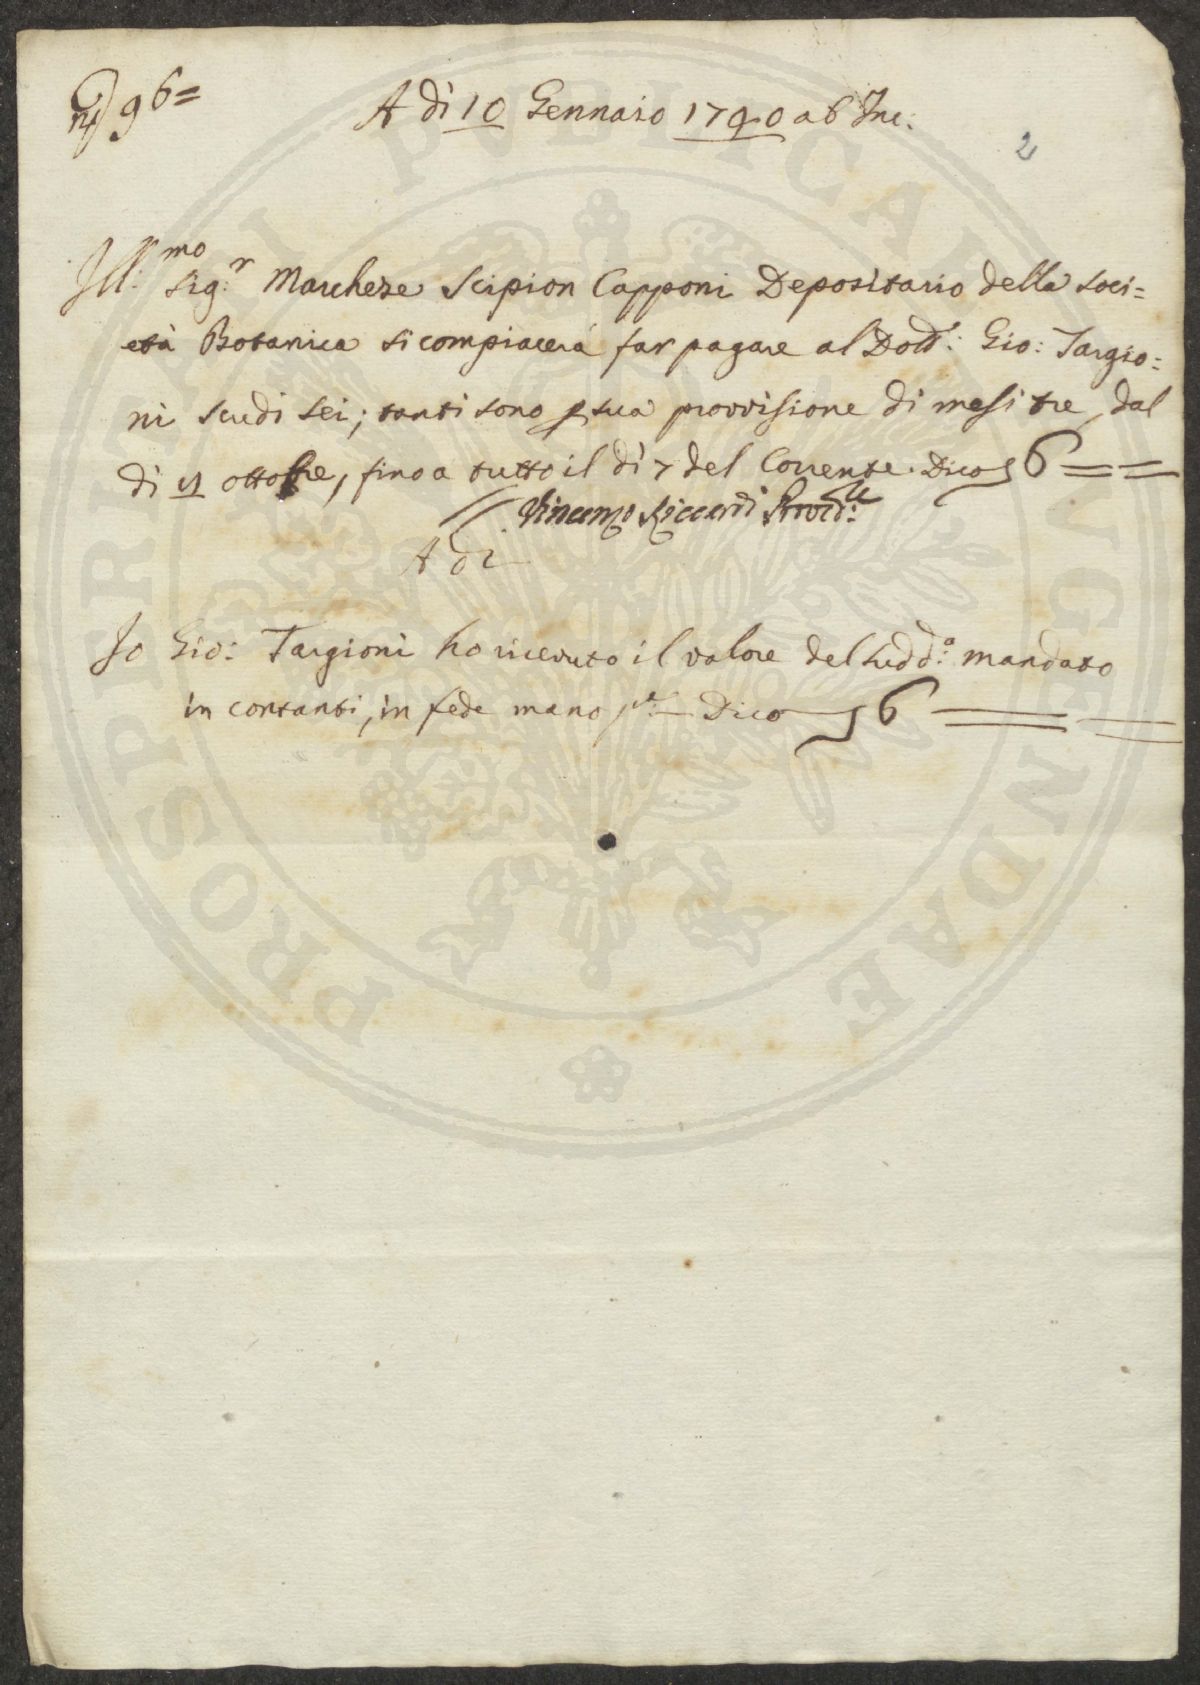 N.º 96=
A dì 10 Gennaio 1740 ab Inc:
2
Ill:mo Sig:r Marchese Scipion Capponi Depositario della Soci=
età Botanica si compiacerà far pagare al Dott: Gio: Targio=
ni scudi sei; tanti sono p sua provvisione di mesi tre, dal
dì ottobre, fino a tutto il dì 7 del Corrente. Dico 6
Vincenzo Riccardi Provd:re
A dì
Io Gio: Targioni ho ricevuto il valore del sudd:o mandato
in contanti, in fede mano p:a Dico 6
PROSPERITATI PUBLICAE AUGENDAE